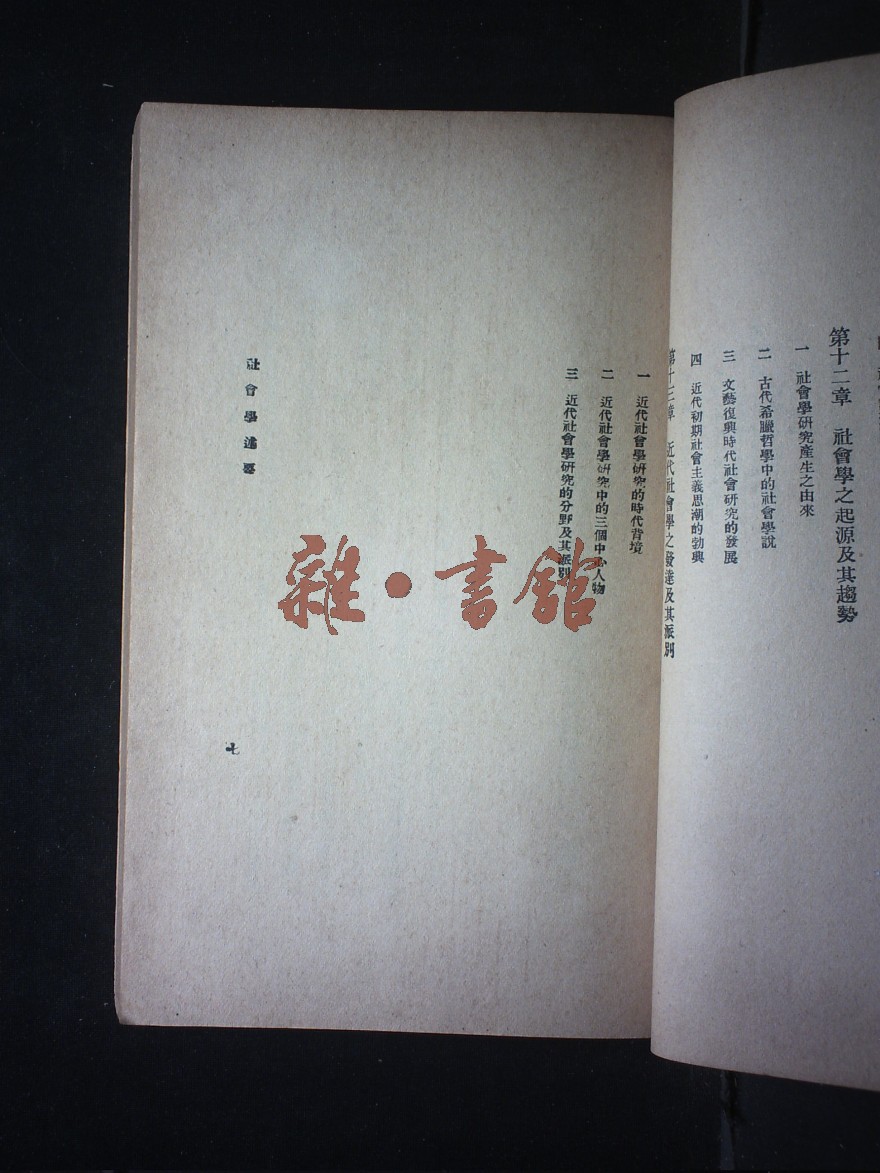 第十二章 社會學之起源及其趨勢
一 社會學研究產生之由來
二 古代希臘哲學中的社會學說
三 文藝復興時代社會研究的發展
四 近代初期社會主義思潮的勃興
第十三章 近代社會學之發達及其派別
一 近代社會學研究的時代背境
二 近代社會學研究中的三個中心人物
三 近代社會學研究的分野及其派別
社會學述要
七
雜·書館